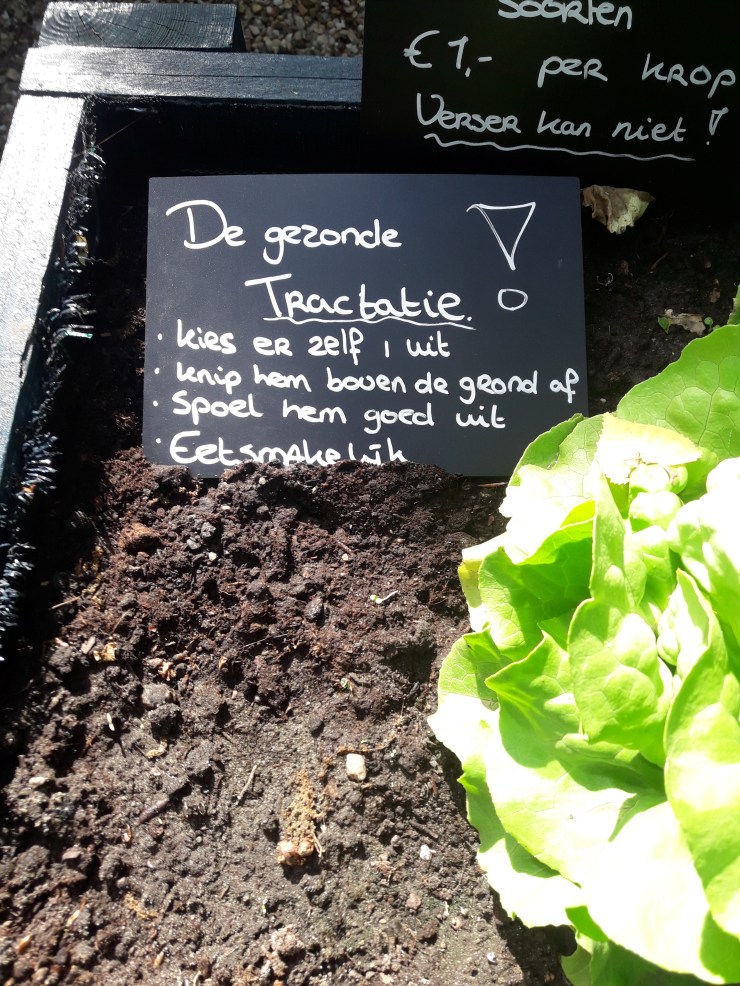 Soorten
€ 1,- per krop
Verser kan niet!
De gezonde !
Tractatie.
· kies er zelf 1 uit
· knip hem boven de grond af
· Spoel hem goed uit
· Eet smakelijk